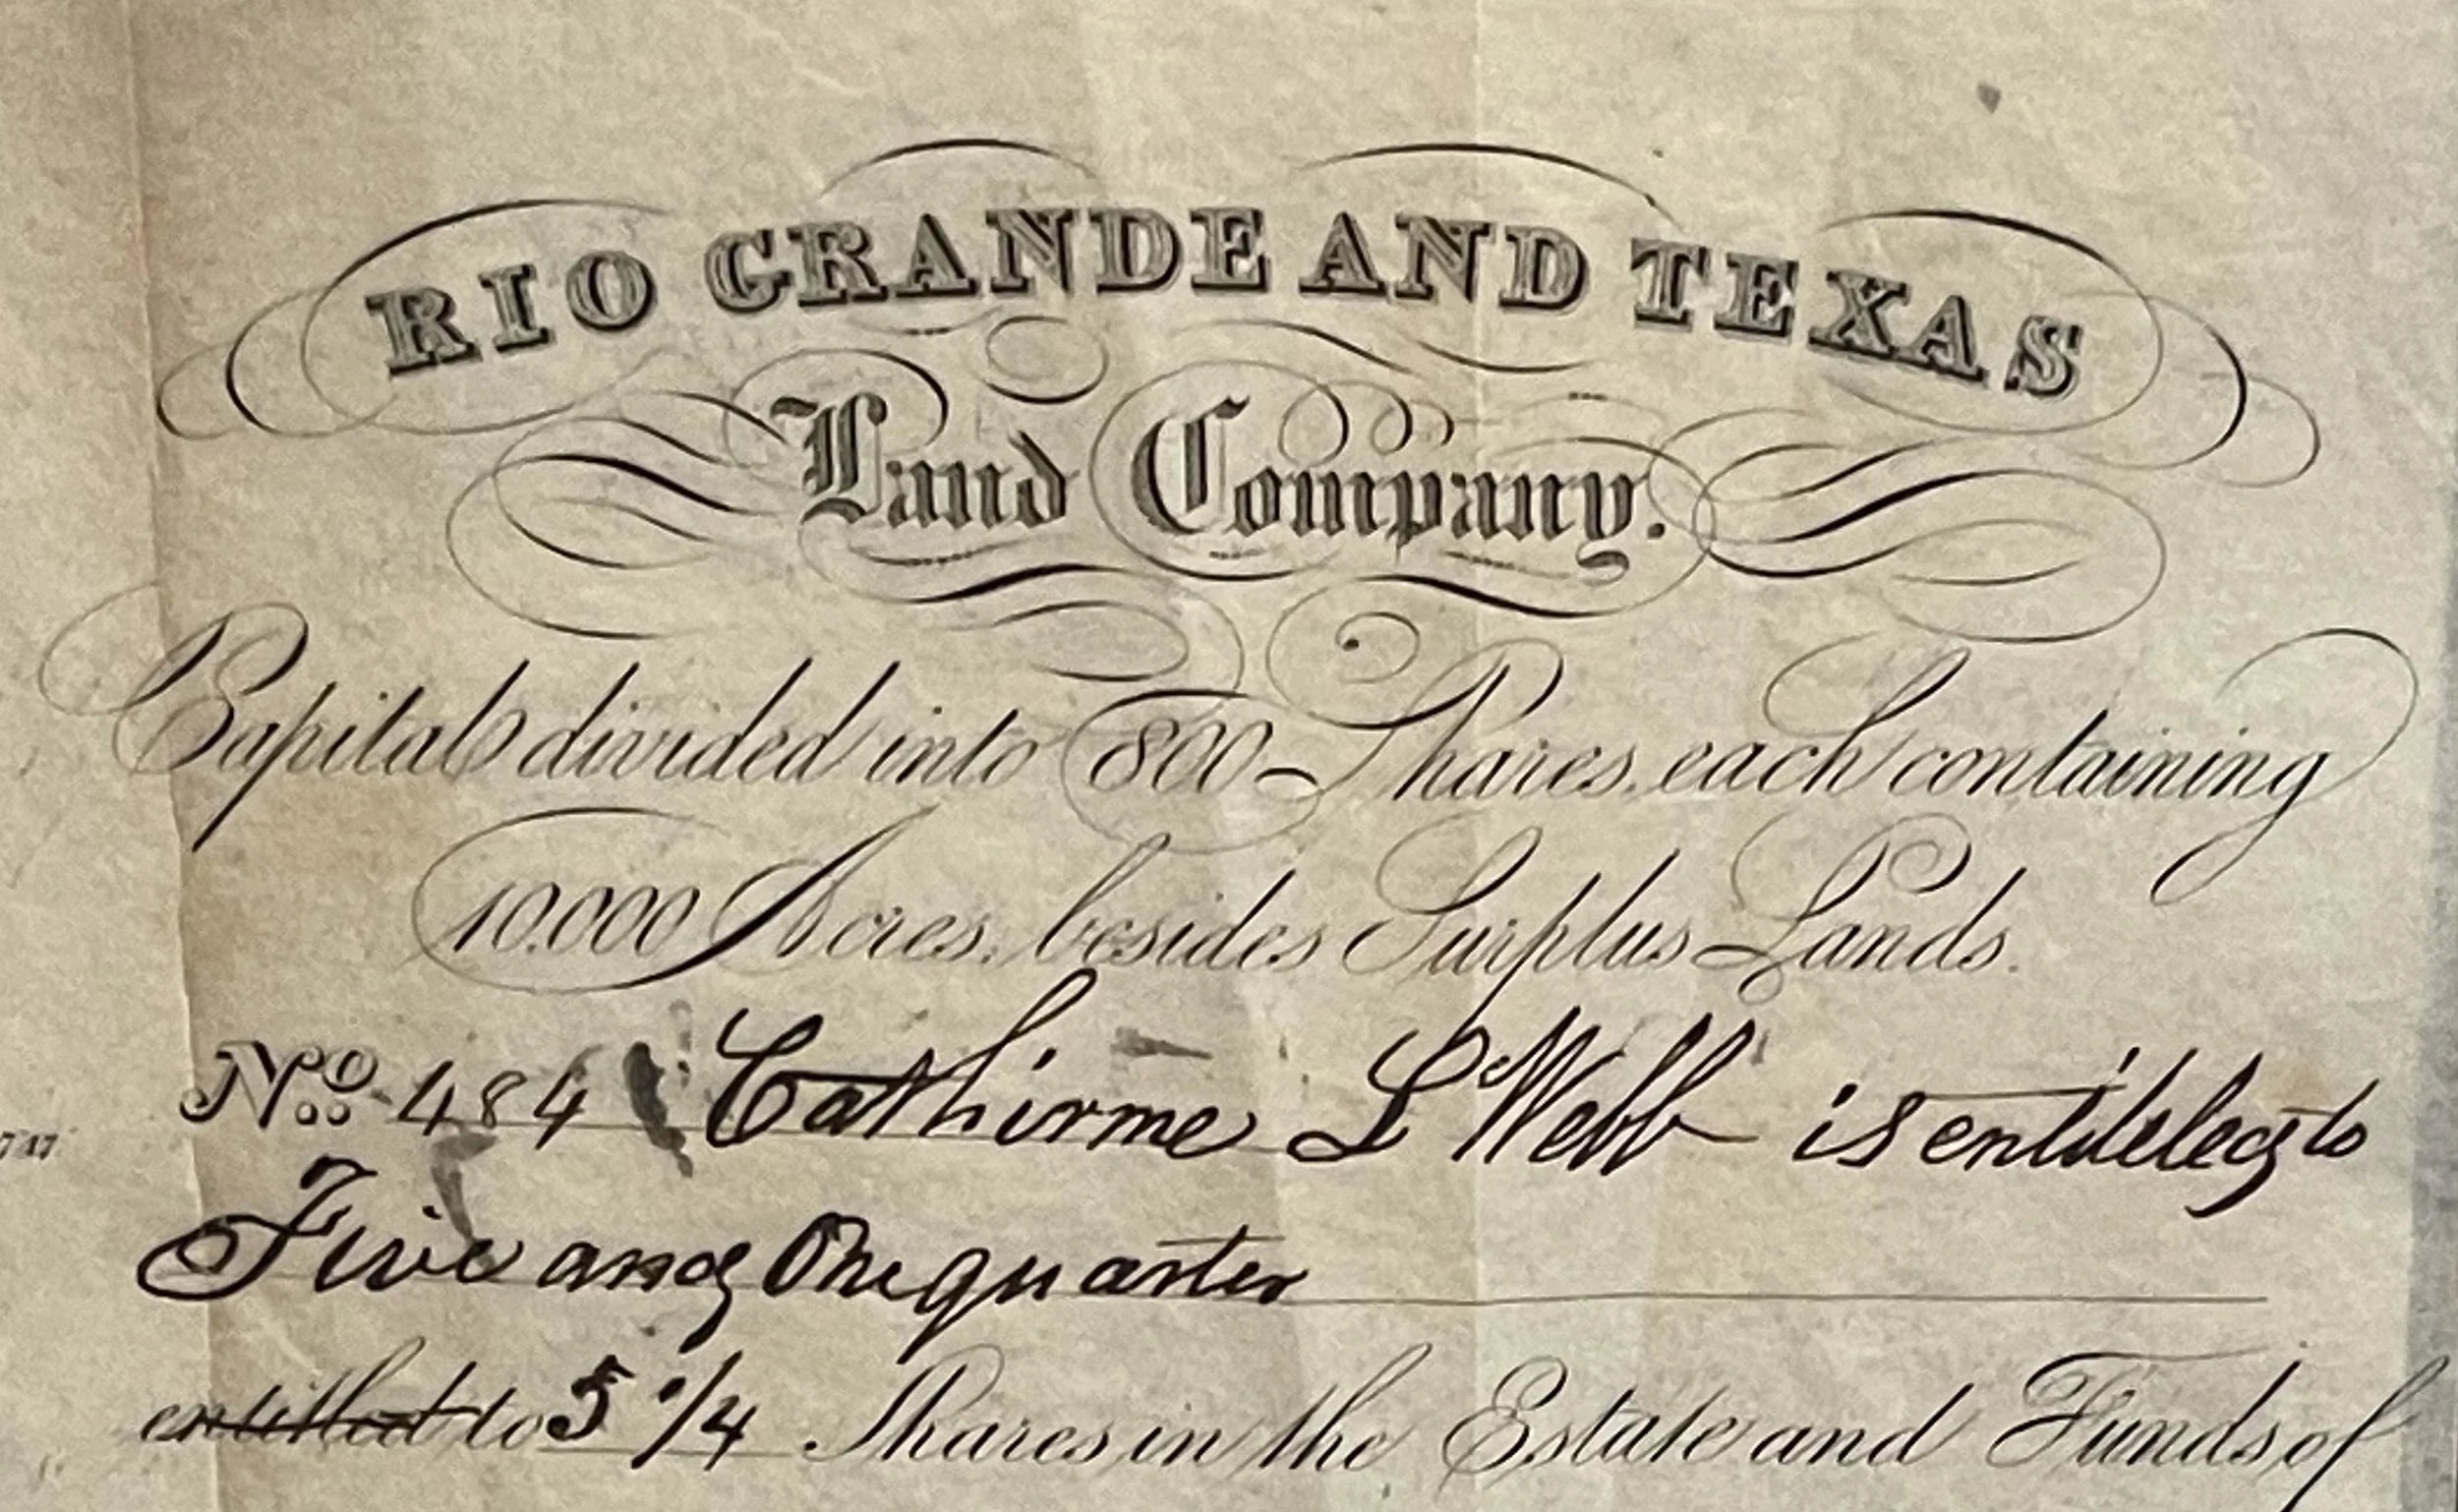 RIO GRANDE AND TEXAS
Land Company.
Capital divided into 800 Shares, each containing
10.000 Acres, besides Surplus Lands.
No. 484 Cathirine L Webb is entitled to
Five and One quarter
entitled to 5 1/4 Shares in the Estate and Funds of